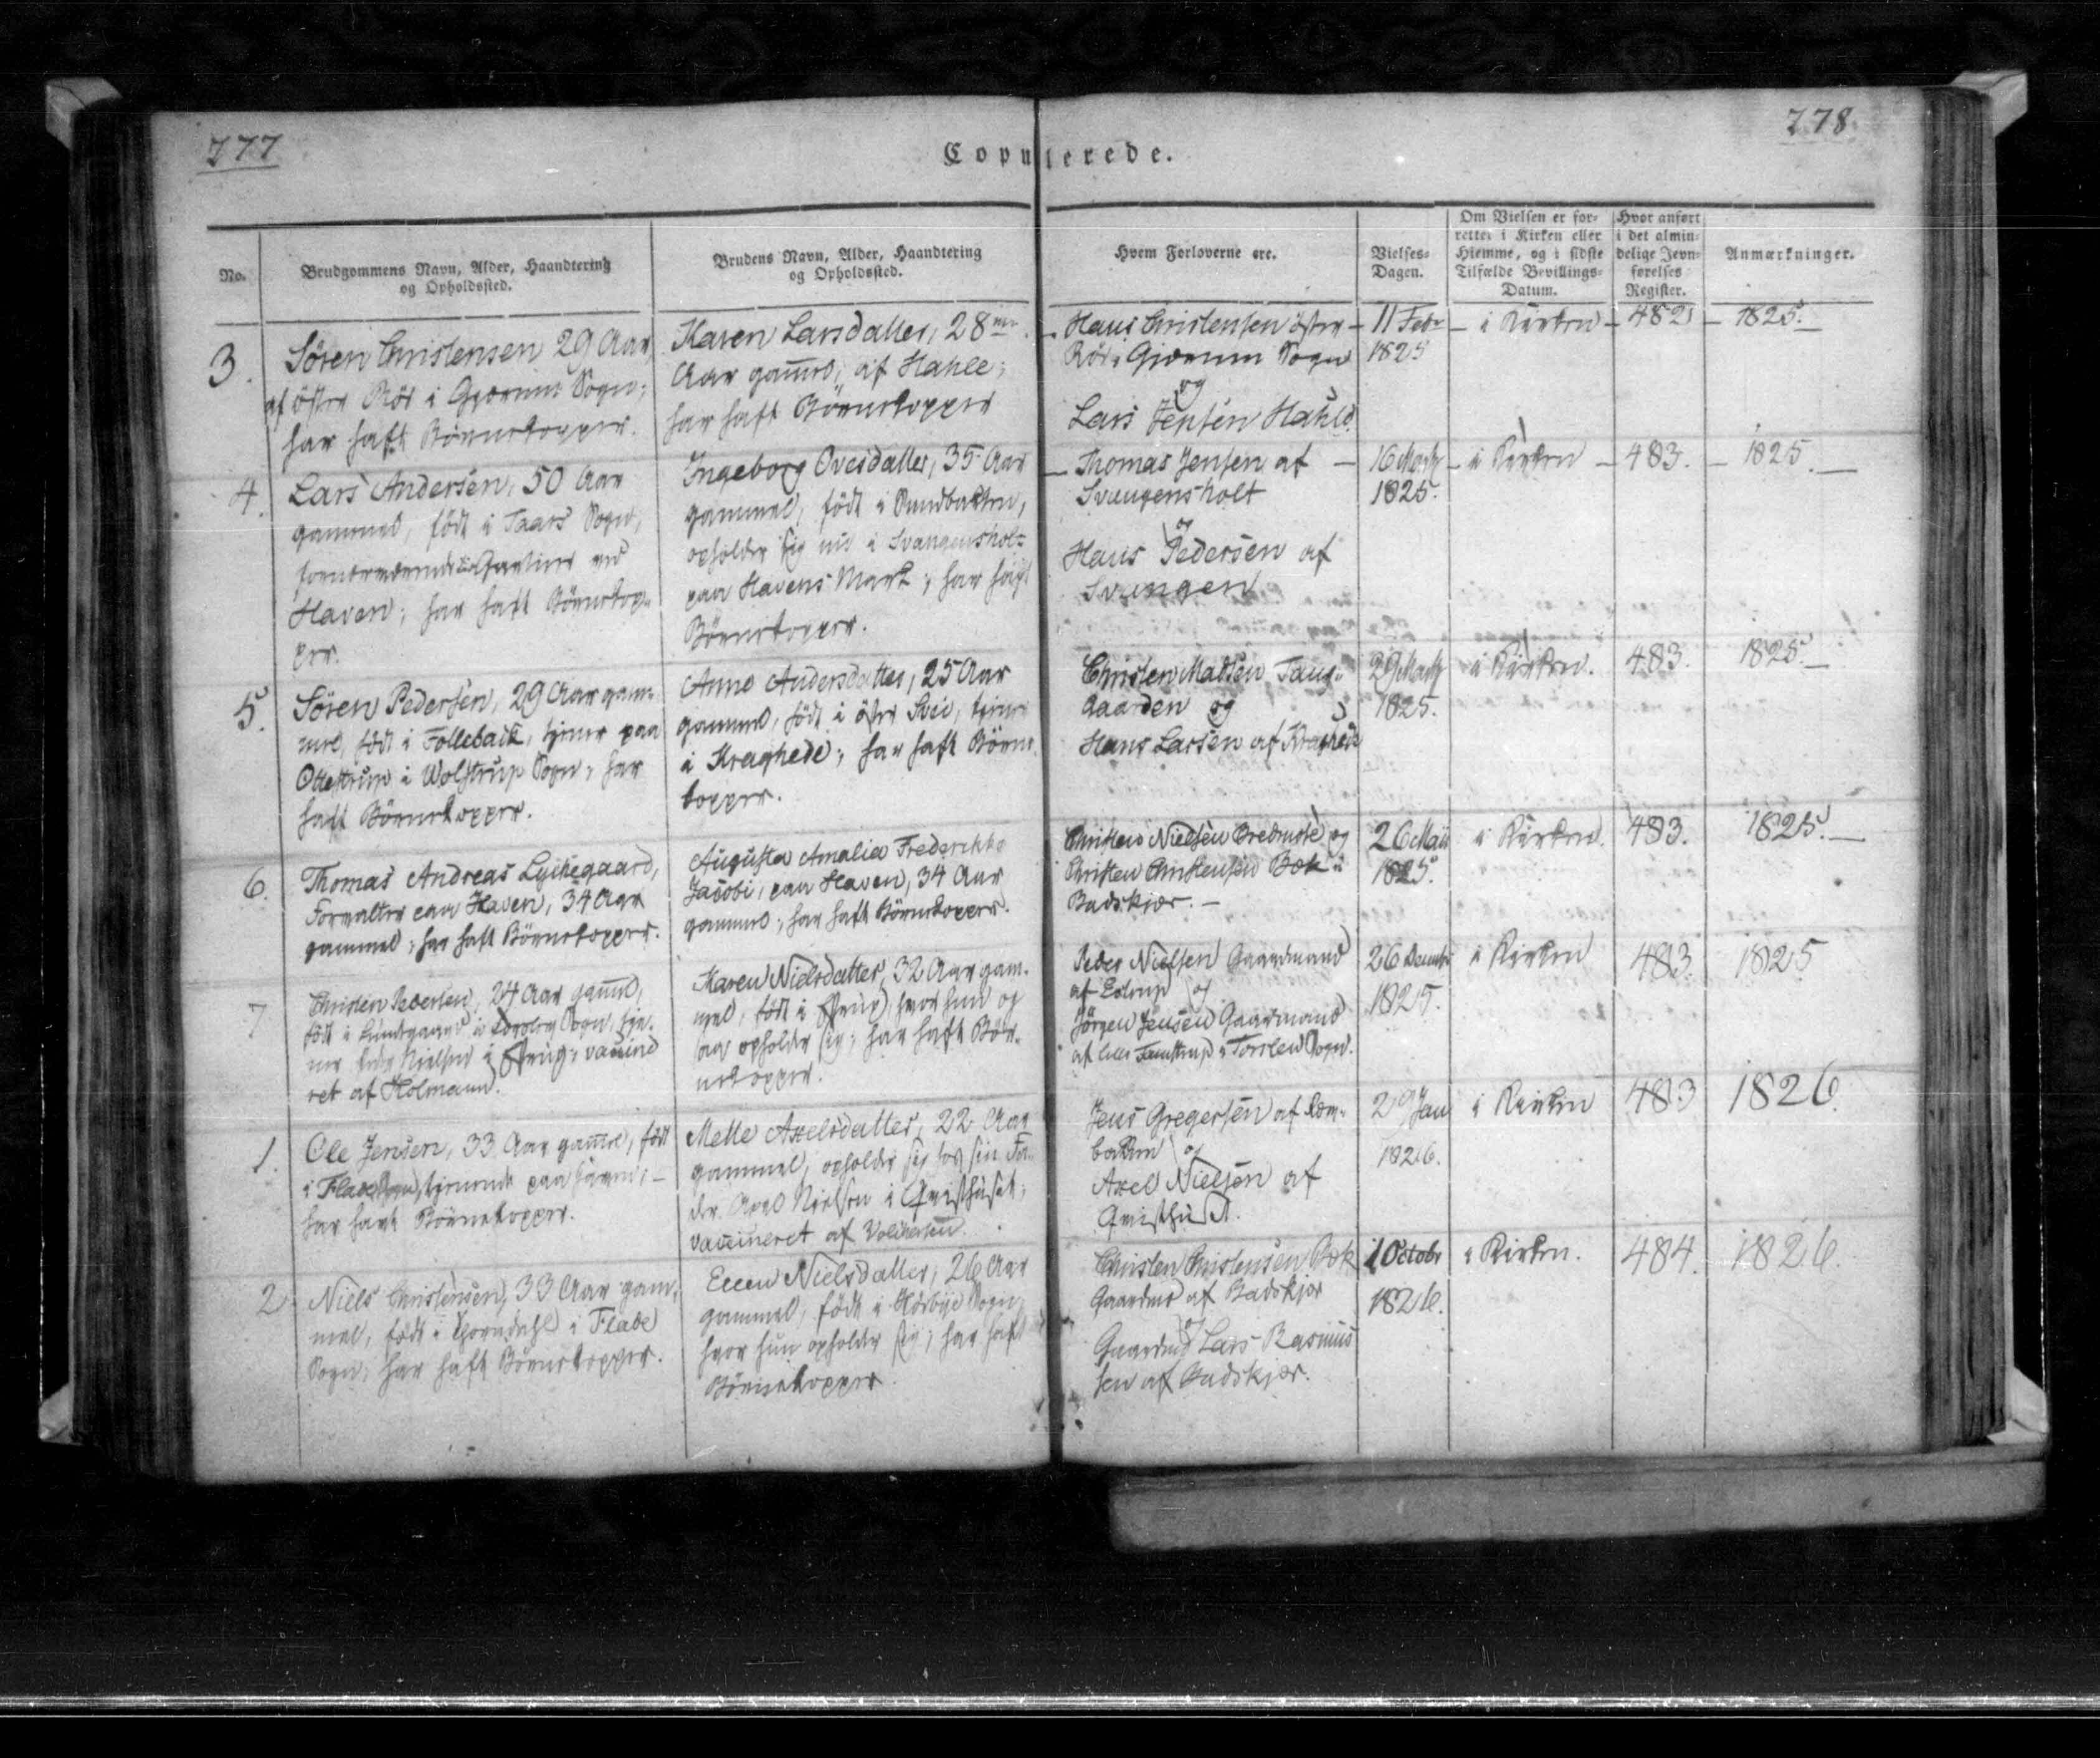 277
278.
Copulerede.
No.
Brudgommens Navn, Alder, Haandtering
og Opholdssted.
Brudens Navn, Alder, Haandtering
og Opholdssted.
Hvem Forloverne ere.
Vielses-
Dagen.
Om Vielsen er for-
rettet i Kirken eller
Hiemme, og i sidste
Tilfælde Bevillings-
Datum.
Hvor anført
i det almin-
delige Jevn-
førelses
Register.
Anmærkninger.
3.
Sören Christensen 29 Aar
af östre Röd i Gjærum Sogn;
har haft Börnekopper.
Karen Larsdatter, 28
Aar gaml, af Hahle;
har haft Börnekopper
Hans Christensen östre
Röd i Gjærum Sogn
og
Lars Jensen Hahle.
11 Febr
1825
i Kirken
482
1825.
4.
Lars Andersen, 50 Aar
gammel, född i Taars Sogn,
Gartner ved
Haven; har haft Börnekop-
per.
Ingeborg Ovesdatter, 35 Aar
gammel, född i Sundbakken,
opholder sig nu i Svangensholt
paa Havens Mark; har haft
Börnekopper.
Thomas Jensen af
Svangensholt
og
Hans Pedersen af
Svangen
16 Marts
1825.
i Kirken
483.
1825.
5.
Sören Pedersen, 29 Aar gam-
mel, född i Follebæk, tjener paa
Ottestrup i Wolstrup Sogn; har
haft Börnekopper.
Anne Andersdatter, 25 Aar
gammel, född i östre Svei, tjener
i Kraghede; har haft Börne
kopper.
Christen Madsen Taug-
Gaarden og
Hans Larsen af Kraghede
29 Marts
1825.
i Kirken.
483.
1825.
6.
Thomas Andreas Lykkegaard,
Forvalter paa Haven, 34 Aar
gammel; har haft Börnekopper.
Augusta Amalia Frederikke
Jacobi, paa Haven, 34 Aar
gammel; har haft Börnekopper.
Christen Nielsen Bredmose og
Christen Christensen Bæk i
Badskjær.
26 Maii
1825.
i Kirken.
483.
1825.
7
Christen Pedersen, 24 Aar gaml,
född i Lundgaard i Sogn, tje-
ner Peder Nielsen i vaccine
ret af Holmann.
Maren Nielsdatter, 32 Aar gam-
mel, född i hvor hun og
saa opholder sig; har haft Bör-
nekopper.
Peder Nielsen Gaardmand
af Estrup og
Jörgen Jensen Gaardmand
af lille i Torslev Sogn.
26 Decembr
1825.
i Kirken
483.
1825
1.
Ole Jensen, 33 Aar gaml, född
i Flade Sogn, tjenende paa
har haft Börnekopper.
Mette Axelsdatter, 22 Aar
gammel, opholder sig hos sin Fa-
der Axel Nielsen i Qvisthuset;
vaccineret af
Jens Gregersen af Röm-
bakken og
Axel Nielsen af
Qvisthuset.
29 Jan
1826.
i Kirken
483
1826.
2
Niels Christensen, 33 Aar gam-
mel, född i i Flade
Sogn; har haft Börnekopper.
Ellen Nielsdatter, 26 Aar
gammel, född i Sogn
hvor hun opholder sig; har haft
Börnekopper.
Christen Christensen Bæk
Gaardmd af Badskjær
og
Gaardmd Lars Rasmus
sen af Badskjær.
1 Octobr
1826.
i Kirken.
484.
1826.